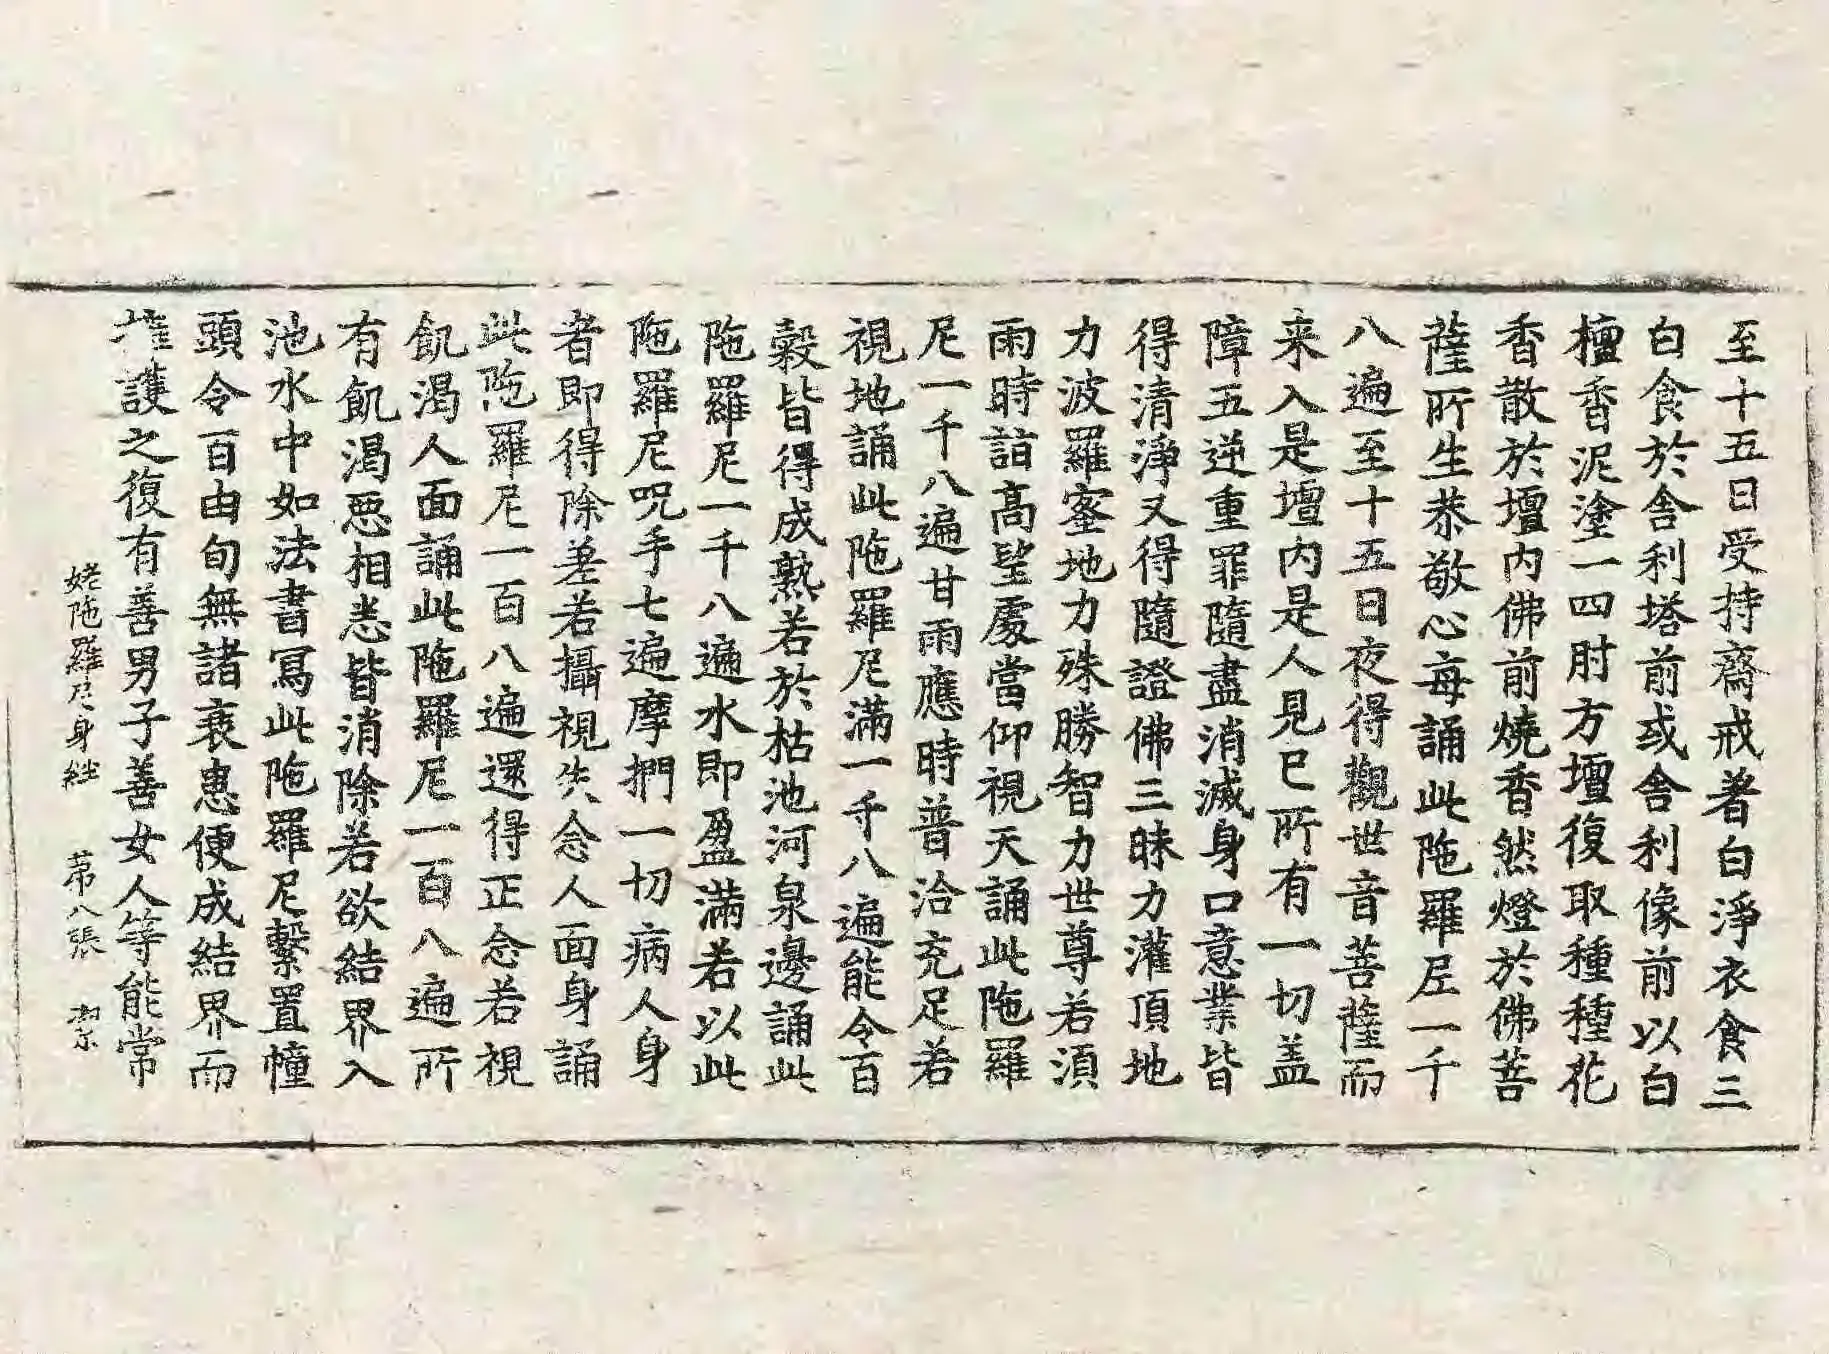 至十五日受持齋戒著白淨衣食三
白食於舍利塔前或舍利像前以白
檀香泥塗一四肘方壇復取種種花
香散於壇內佛前燒香然燈於佛菩
薩所生恭敬心每誦此陁羅尼一千
八遍至十五日夜得觀世音菩薩而
来入是壇內是人見已所有一切盖
障五逆重罪隨盡消滅身口意業皆
得清淨又得隨證佛三昧力灌頂地
力波羅蜜地力殊勝智力世尊若須
雨時詣高望處當仰視天誦此陁羅
尼一千八遍甘雨應時普洽充足若
視地誦此陁羅尼滿一千八遍能令百
穀皆得成熟若於枯池河泉邊誦此
陁羅尼一千八遍水即盈滿若以此
陁羅尼呪手七遍摩捫一切病人身
者即得除差若攝視失念人面身誦
此陁羅尼一百八遍還得正念若視
飢渴人面誦此陁羅尼一百八遍所
有飢渴惡相悉皆消除若欲結界入
池水中如法書寫此陁羅尼繫置幢
頭令百由旬無諸衰患便成結界而
擁護之復有善男子善女人等能常
姥陁羅尼身経 苐八張 絜